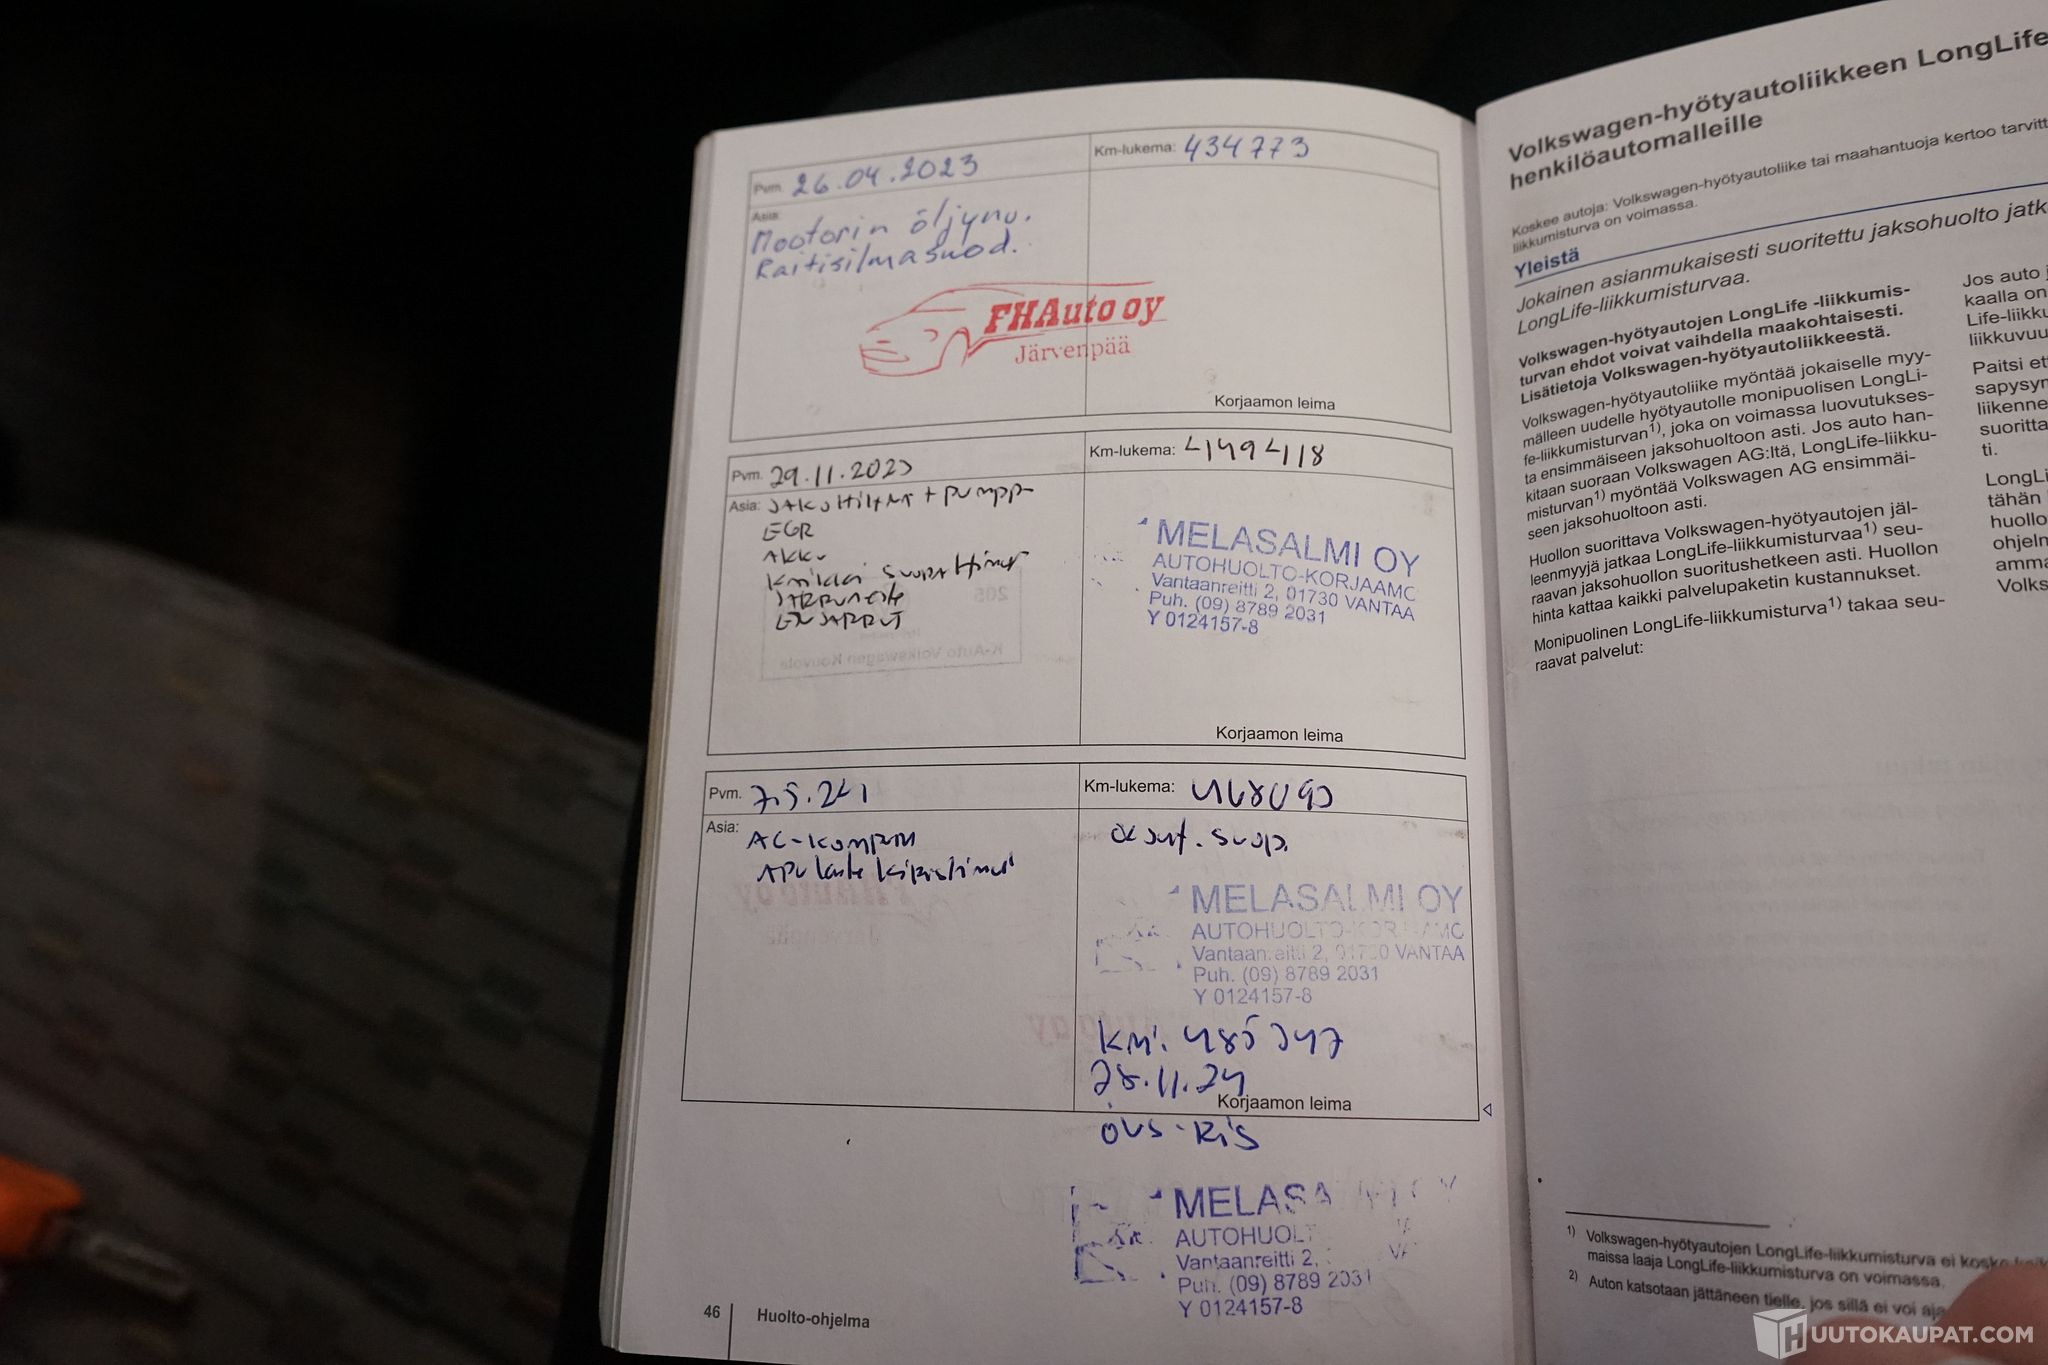 Pvm. 26.04.2023
Km-lukema: 434773
Asia:
Mootorin öljynv.
Raitisilmasuod.
FHAuto oy
Järvenpää
Korjaamon leima
Pvm. 29.11.2023
Km-lukema: 449418
Asia: JAKOHIHNA + PUMPP
EGR
AKKU
KAIKKI SUODATTIMET
JARRUNESTE
ETUJARRUT
MELASALMI OY
AUTOHUOLTO-KORJAAMO
Vantaanreitti 2, 01730 VANTAA
Puh. (09) 8789 2031
Y 0124157-8
Korjaamon leima
Pvm. 7.5.24
Km-lukema: 468093
Asia:
AC-KOMPRA
APULAITE KIRISTIMET
suod.
MELASALMI OY
AUTOHUOLTO-KORJAAMO
Vantaanreitti 2, 01730 VANTAA
Puh. (09) 8789 2031
Y 0124157-8
Km: 485347
28.11.24
Korjaamon leima
MELASA
AUTOHUOLT
Vantaanreitti 2, VA
Puh. (09) 8789 2031
Y 0124157-8
46
Huolto-ohjelma
Volkswagen-hyötyautoliikkeen LongLife
henkilöautomalleille
Koskee autoja: Volkswagen-hyötyautoliike tai maahantuoja kertoo tarvitt
liikkumisturva on voimassa.
Yleistä
Jokainen asianmukaisesti suoritettu jaksohuolto jatk
LongLife-liikkumisturvaa.
Volkswagen-hyötyautojen LongLife -liikkumis-
turvan ehdot voivat vaihdella maakohtaisesti.
Lisätietoja Volkswagen-hyötyautoliikkeestä.
Volkswagen-hyötyautoliike myöntää jokaiselle myy-
mälleen uudelle hyötyautolle monipuolisen LongLi-
fe-liikkumisturvan1), joka on voimassa luovutukses-
ta ensimmäiseen jaksohuoltoon asti. Jos auto han-
kitaan suoraan Volkswagen AG:ltä, LongLife-liikku-
misturvan1) myöntää Volkswagen AG ensimmäi-
seen jaksohuoltoon asti.
Huollon suorittava Volkswagen-hyötyautojen jäl-
leenmyyjä jatkaa LongLife-liikkumisturvaa1) seu-
raavan jaksohuollon suoritushetkeen asti. Huollon
hinta kattaa kaikki palvelupaketin kustannukset.
Monipuolinen LongLife-liikkumisturva1) takaa seu-
raavat palvelut:
Jos auto j
kaalla on
Life-liikku
liikkuvuu
Paitsi ett
sapysyn
liikenne
suoritta
ti.
LongLi
tähän
huollo
ohjelm
amma
Volks
1) Volkswagen-hyötyautojen LongLife-liikkumisturva ei koske
maissa laaja LongLife-liikkumisturva on voimassa.
2) Auton katsotaan jättäneen tielle, jos sillä ei voi aja
HUUTOKAUPAT.COM